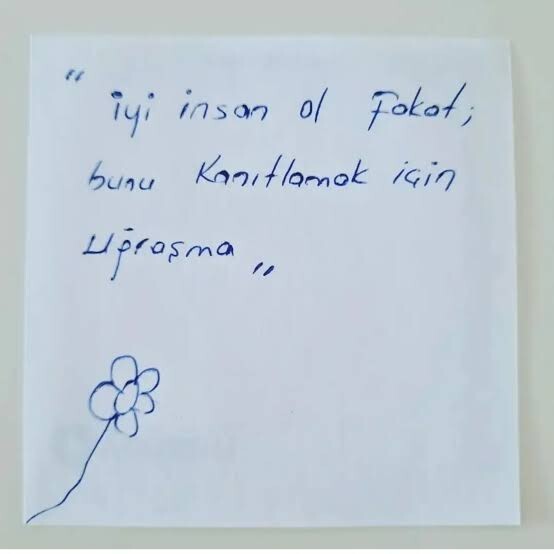 " iyi insan ol Fakat;
bunu Kanıtlamak için
Uğraşma "